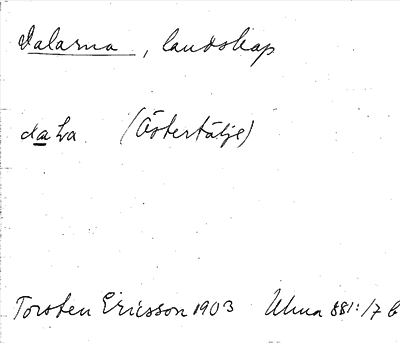 Dalarna, landskap
daLa (Östertälje)
Torsten Ericsson 1903 Ulma 881:/7 b